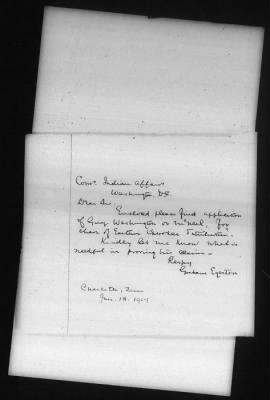 Com'r. Indian Affairs
Washington DC.
Dear Sir,
Enclosed please find application
of Washington McNeil, for
share of Eastern Cherokee Distribution.
Kindly let me know what is
needful in proving his claim.
Respy
Graham Egerton
Jan. 18. 1907